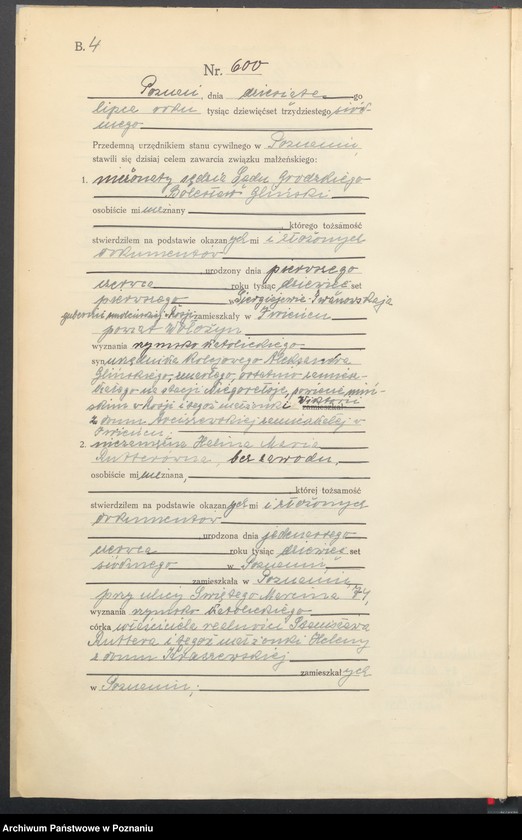 B. 4
Nr. 600
Poznań, dnia dziesiątego
lipca roku tysiąc dziewięćset trzydziestego siód-
mego
Przedemną urzędnikiem stanu cywilnego w Poznaniu
stawili się dzisiaj celem zawarcia związku małżeńskiego:
1. nieżonaty sędzia Sądu Grodzkiego
Bolesław Gliński
osobiście mi nieznany
, którego tożsamość
stwierdziłem na podstawie okazanych mi i złożonych
dokumentów
, urodzony dnia pierwszego
czerwca roku tysiąc dziewięć set
pierwszego w
zamieszkały w Iwieńcu
powiat Wołożyn
wyznania rzymsko katolickiego
syn urzędnika kolejowego Aleksandra
Glińskiego, zmarłego, ostatnio zamiesz-
kałego na stacji Niegorełoje, powiecie miń-
skim w Rosji i tegoż małżonki Wiktorii
zamieszkał
z domu zamieszkałej w
Iwieńcu.
2. niezamężna Helena Maria
Rutterówna, bez zawodu,
osobiście mi nieznana,
, której tożsamość
stwierdziłem na podstawie okazanych mi i złożonych
dokumentów
, urodzona dnia jedenastego
czerwca roku tysiąc dziewięć set
siódmego w Poznaniu
zamieszkała w Poznaniu
przy ulicy Świętego Marcina 74,
wyznania rzymsko katolickiego
córka właściciela realności Stanisława
Ruttera i tegoż małżonki Heleny
z domu
zamieszkałych
w Poznaniu.
Archiwum Państwowe w Poznaniu